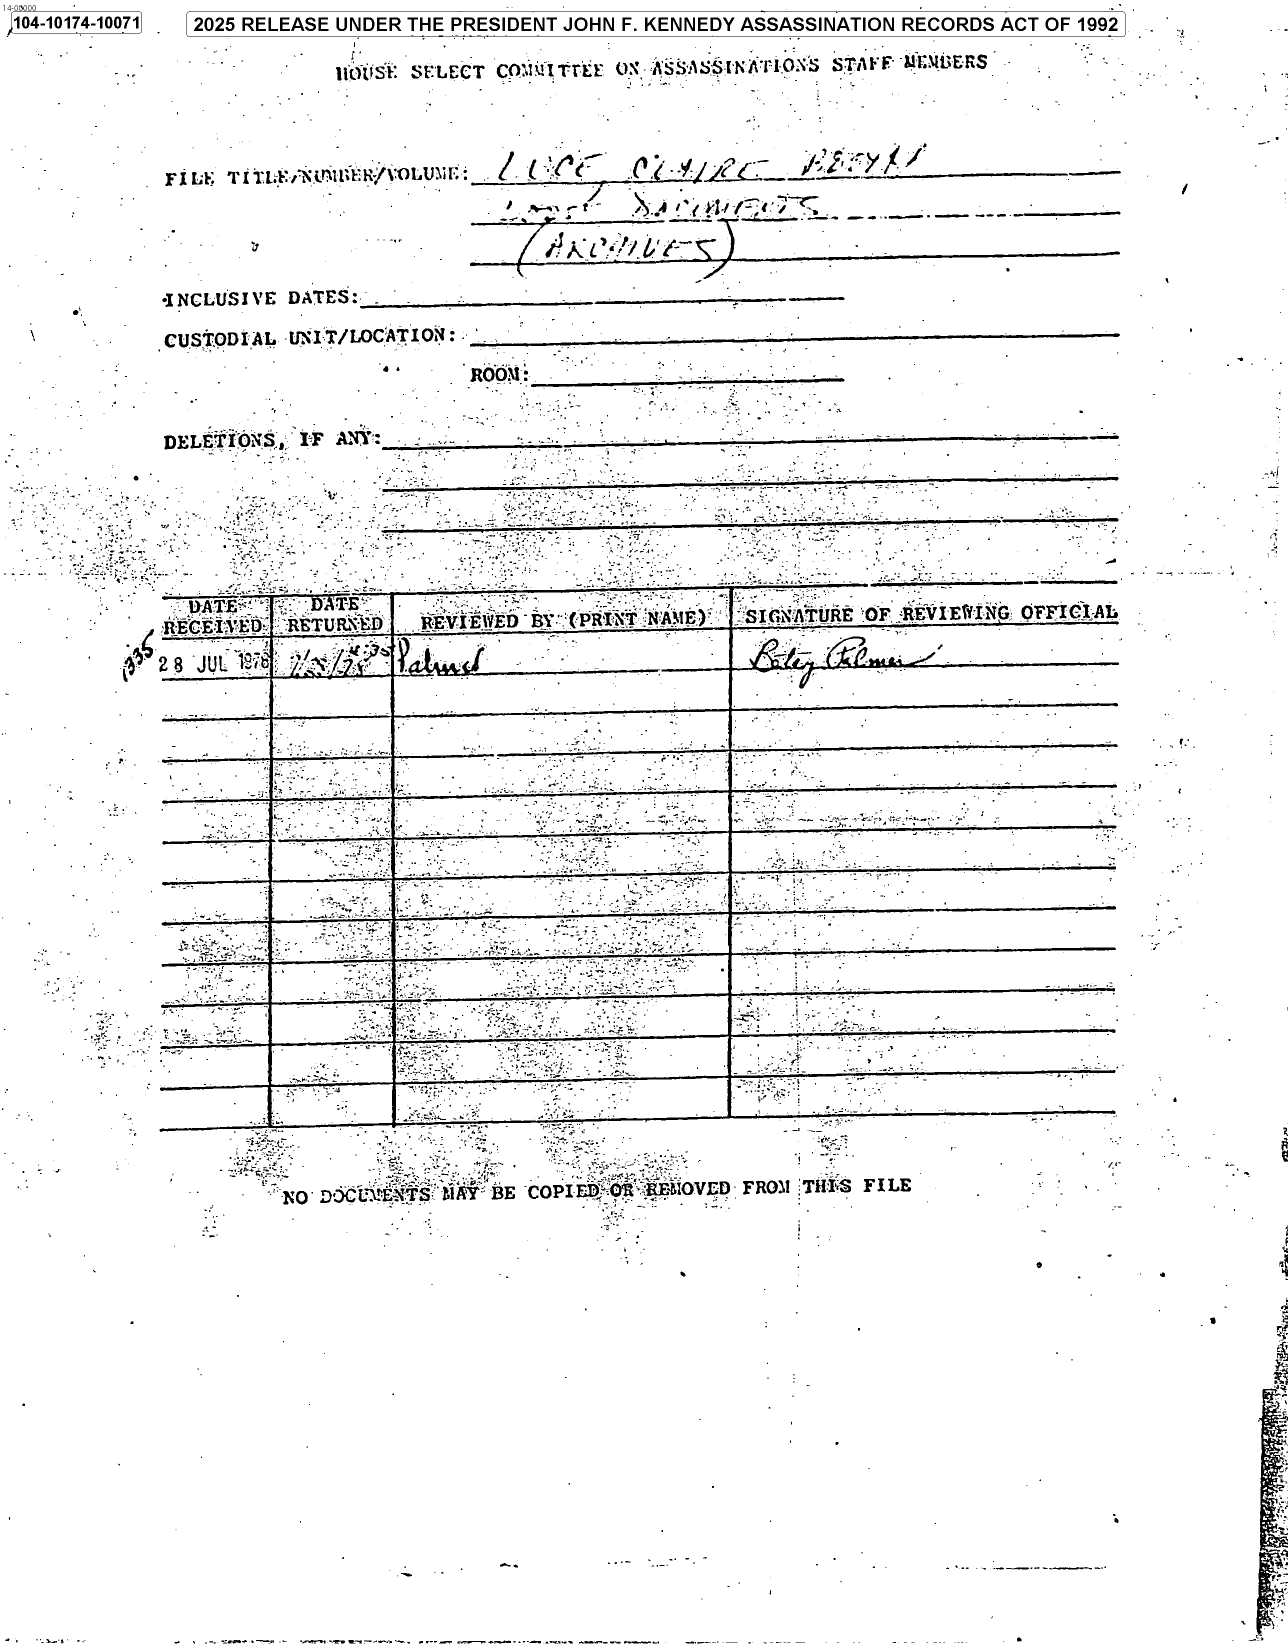 14-00000
104-10174-10071
2025 RELEASE UNDER THE PRESIDENT JOHN F. KENNEDY ASSASSINATION RECORDS ACT OF 1992
HOUSE SELECT COMMITTEE ON ASSASSINATIONS STAFF MEMBERS
FILE TITLE/NUMBER/VOLUME: LUCE, CLAIRE
DOCUMENTS
(ARCHIVES)
INCLUSIVE DATES:
CUSTODIAL UNIT/LOCATION:
ROOM:
DELETIONS, IF ANY:
DATE RECEIVED DATE RETURNED REVIEWED BY (PRINT NAME) SIGNATURE OF REVIEWING OFFICIAL
1335 28 JUL 1978 7/28/78 Palmer Betsy Palmer
NO DOCUMENTS MAY BE COPIED OR REMOVED FROM THIS FILE